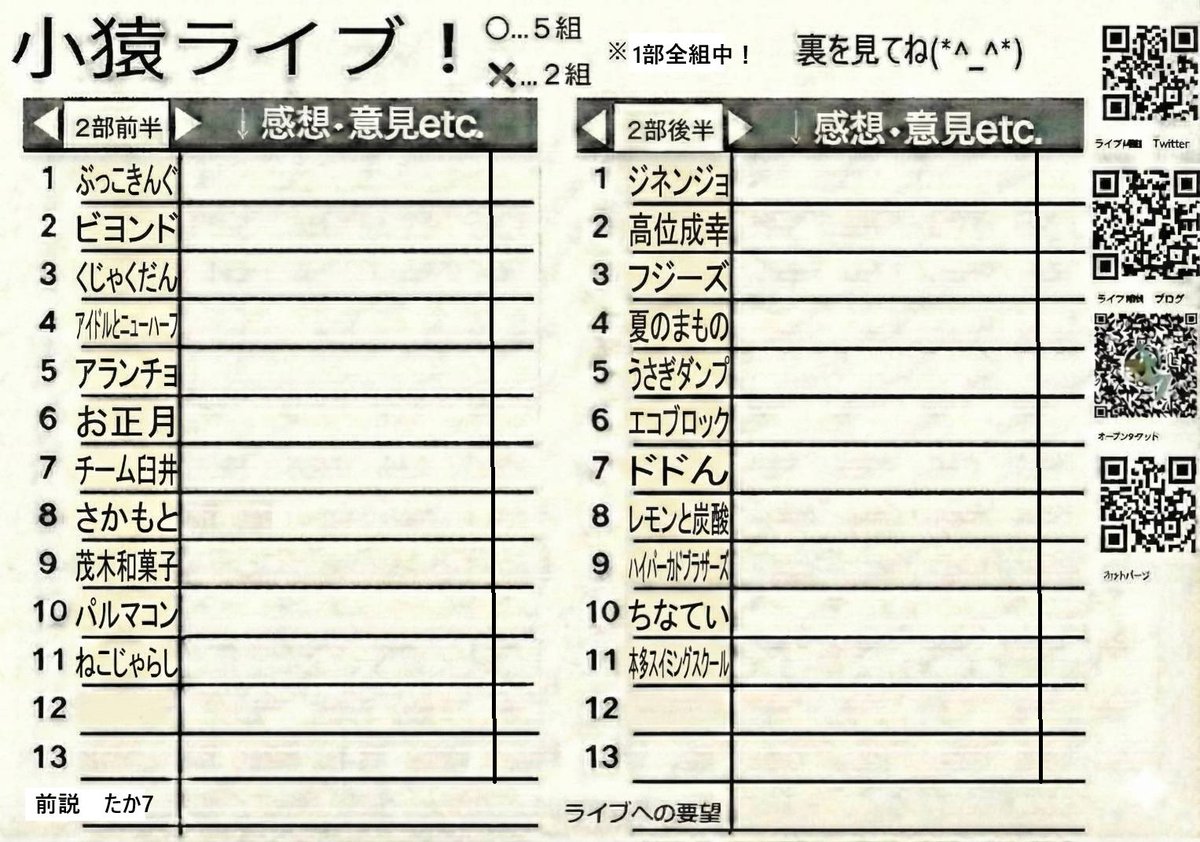 小猿ライブ！
○…５組
✕…２組
※1部全組中！
裏を見てね(*^_^*)
◀ 2部前半 ▶ ↓感想・意見etc.
1 ぶっこきんぐ
2 ビヨンド
3 くじゃくだん
4 アイドルとニューハーフ
5 アランチョ
6 お正月
7 チーム臼井
8 さかもと
9 茂木和菓子
10 パルマコン
11 ねこじゃらし
12
13
前説　たか7
◀ 2部後半 ▶ ↓感想・意見etc.
1 ジネンジョ
2 高位成幸
3 フジーズ
4 夏のまもの
5 うさぎダンプ
6 エコブロック
7 ドドん
8 レモンと炭酸
9 ハイパーカドブラザーズ
10 ちなてい
11 本多スイミングスクール
12
13
ライブへの要望
Twitter
ブログ
オープンタケット